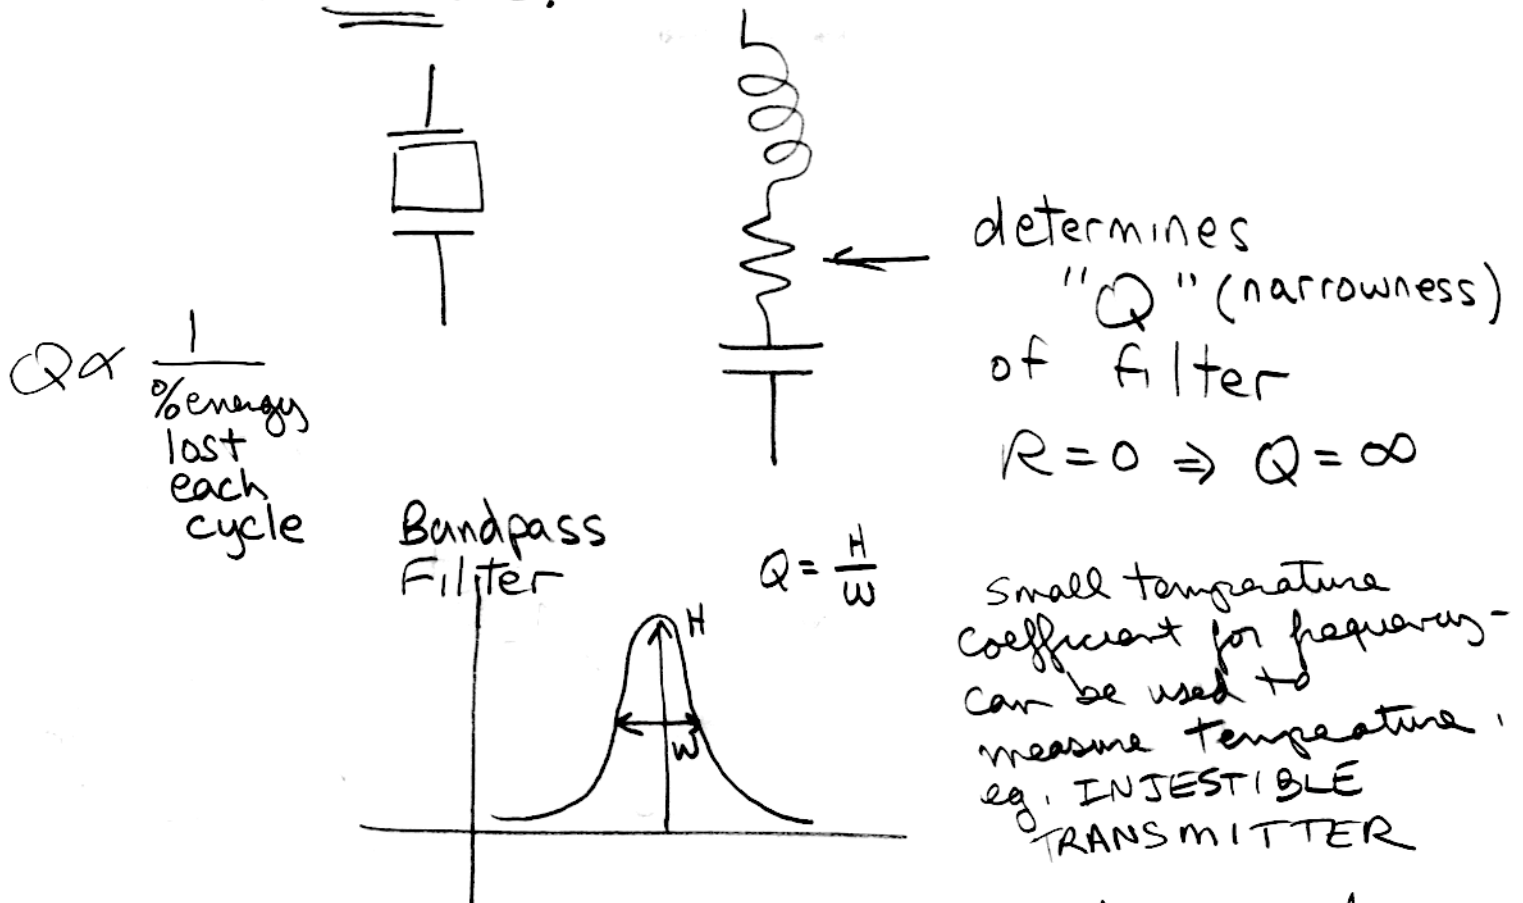 determines
"Q" (narrowness)
of filter
R = 0 ⇒ Q = ∞
Q ∝ 1
% energy
lost
each
cycle
Bandpass
Filter
Q = H
W
H
W
small temperature
coefficient for frequency -
can be used to
measure temperature.
eg. INJESTIBLE
TRANSMITTER